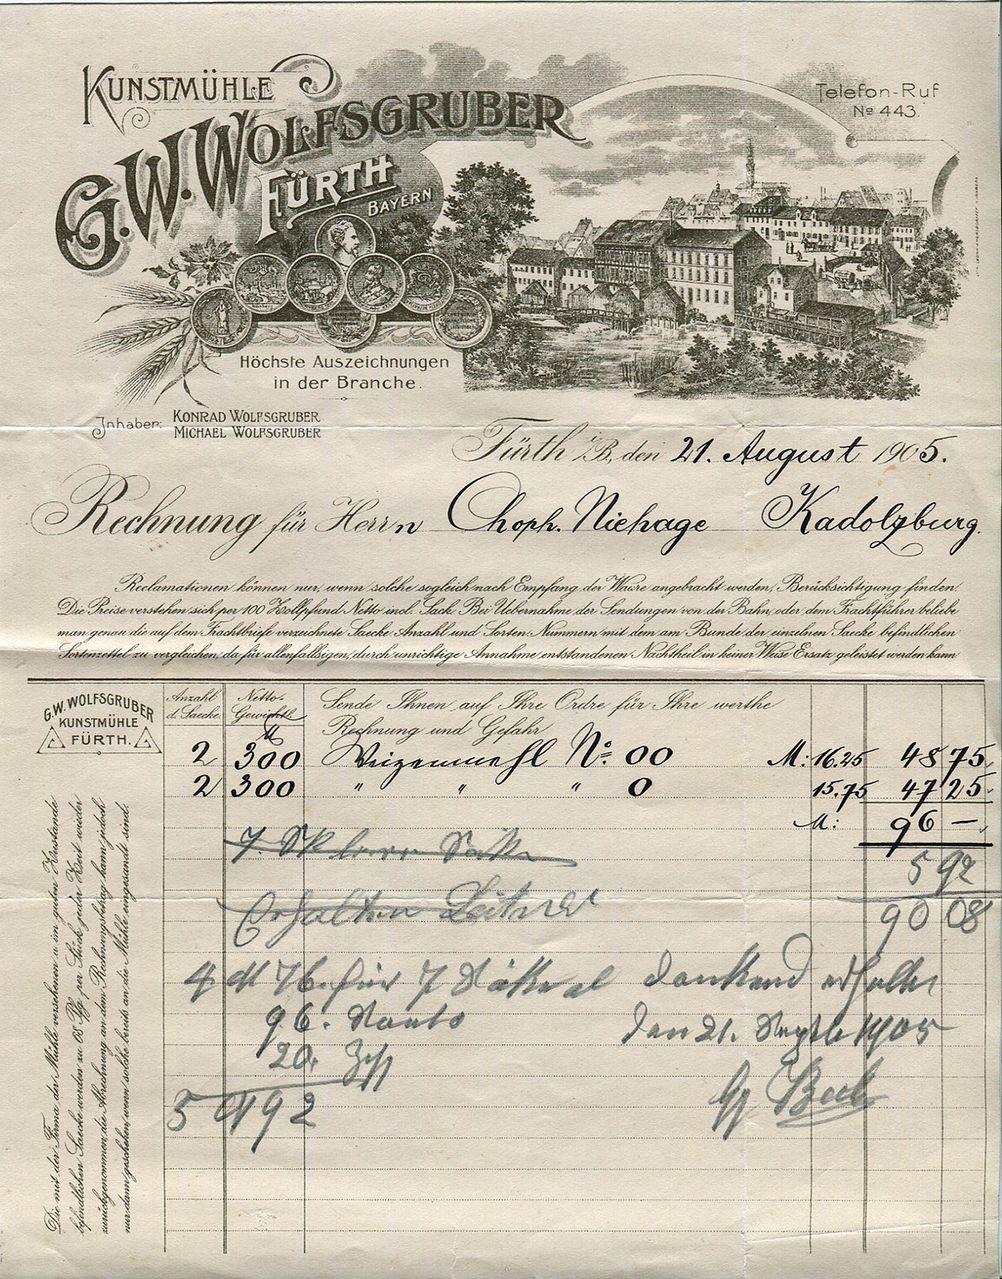 KUNSTMÜHLE
G.W. WOLFSGRUBER
FÜRTH
BAYERN
Telefon-Ruf
No 443.
Höchste Auszeichnungen
in der Branche.
Inhaber: KONRAD WOLFSGRUBER
MICHAEL WOLFSGRUBER
Fürth i/B, den 21. August 1905.
Rechnung für Herrn Choph. Niehage Kadolzburg.
Reclamationen können nur, wenn solche sogleich nach Empfang der Waare angebracht werden, Berücksichtigung finden.
Die Preise verstehen sich per 100 Zollpfund Netto incl. Sack. Bei Uebernahme der Sendungen von der Bahn oder dem Frachtführer beliebe
man genau die auf dem Frachtbrief verzeichnete Saecke-Anzahl und Sorten-Nummern mit dem am Bunde der einzelnen Saecke befindlichen
Sortenzettel zu vergleichen, da für allenfallsigen, durch unrichtige Annahme entstandenen Nachtheil in keiner Weise Ersatz geleistet werden kann
G.W. WOLFSGRUBER
KUNSTMÜHLE
FÜRTH.
Anzahl d. Saecke
Netto-Gewicht
Sende Ihnen auf Ihre Ordre für Ihre werthe
Rechnung und Gefahr
2 300 Weizenmehl No. 00 M: 16.25 48 75
2 300 " " " 0 15.75 47 25
M: 96 —
5 92
Erhalten 90 08
4 M 76. für 7 dankend erhalten
96. den 21. Septb 1905
20.
5 M 92
Die mit der Firma der Mühle versehenen u. im guten Zustande
befindlichen Saecke werden zu 68 Pfg. per Stück jeder Zeit wieder
zurückgenommen, die Abrechnung an dem Rechnungsbetrag kann jedoch
nur dann geschehen, wenn solche bereits an die Mühle eingesandt sind.